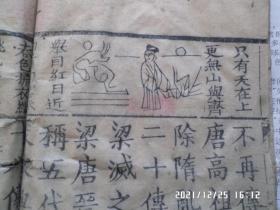 只有天在上
更無山與齊
舉目紅日近
不再傳
唐高
除隋
二十傳
梁滅之
梁唐晉
稱五代
2021/12/25 16:12